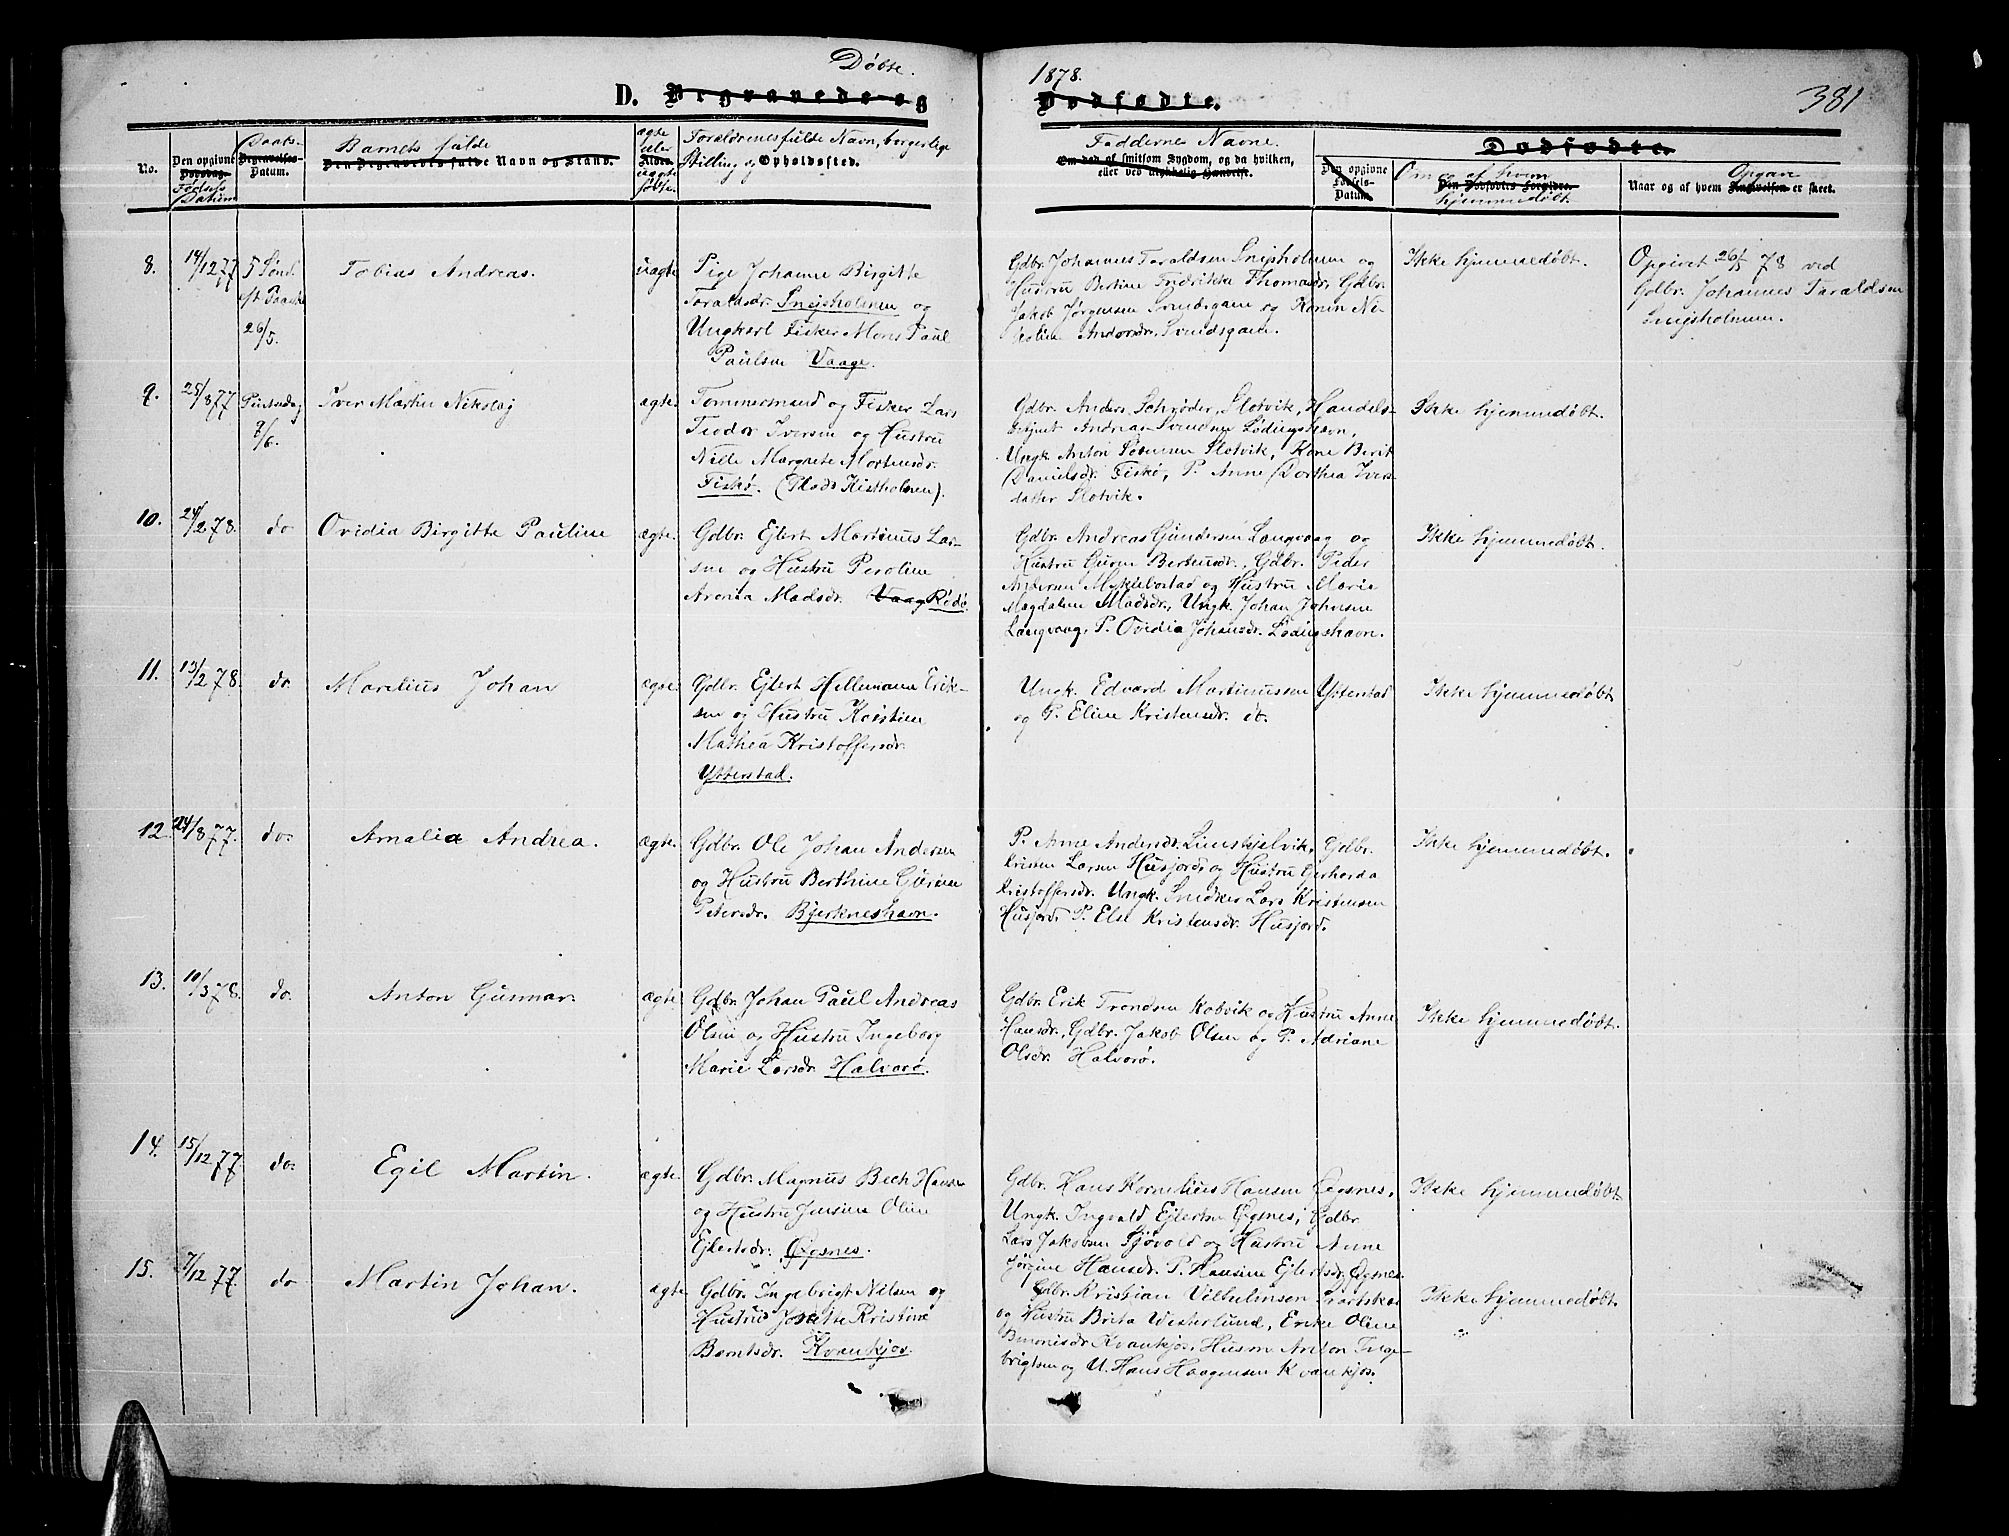 Døbte.
1878.
381
D. Begravede og
Dødfødte.
No.
Den opgivne
Dødsdag.
Fødsels
Datum
Daabs-
Begravelses-
Datum.
Barnets fulde
Den Begravedes fulde Navn og Stand.
ægte
eller
Alder.
uægte
født.
Forældrenes fulde Navn, borgerlige
Stilling og Opholdssted.
Faddernes Navne.
Om død af smitsom Sygdom, og da hvilken,
eller ved ulykkelig Hændelse.
Dødfødte.
Den opgivne
Fødsels-
Datum.
Om og af hvem
Den Dødfødtes Forældre.
hjemmedøbt.
Opgave
Naar og af hvem Angivelsen er skeet.
8.
14/12 77
5 Sønd.
eft Paaske
26/5.
Tobias Andreas.
uægte
Pige Johanne Birgitte
Taraldsdr. Snejsholmen og
Ungkarl Fisker Mons Paul
Paulsen Vaage.
Gdbr. Johannes Taraldsen Snejsholmen og
Hustru Bertine Fredrikke Thomasdr, Gdbr.
Jakob Jørgensen Svendsgam og Konen Ni-
koline Andorsdr. Svendsgam.
Ikke hjemmedøbt.
Opgivet 26/5 78 ved
Gdbr. Johannes Taraldsen
Snejsholmen.
9.
25/8 77
Pintsedag
9/6.
Iver Martin Nikolaj
ægte
Tømmermand og Fisker Lars
Teodor Iversen og Hustru
Nille Margrete Mortensdr.
Fiskø. (Plads Kistholmen).
Gdbr. Anders Schrøder, Slotvik, Handels-
betjent Andreas Svendsen Lødingshavn,
Ungk. Anton Sørensen Slotvik, Kone Berit
Danielsdr. Fiskø, P. Anne Dorthea Ivers-
datter Slotvik.
Ikke hjemmedøbt.
10.
24/2 78.
do
Ovidia Birgitte Pauline
ægte.
Gdbr. Ejlert Martinus Lar-
sen og Hustru Peroline
Aronia Madsdr. Vaag Rødø
Gdbr. Andreas Gundersen Langvaag og
Hustru Guren Bertheusdr., Gdbr. Peder
Andersen Myklebostad og Hustru Marie
Magdalene Madsdr., Ungk. Johan Johnsen
Langvaag, P. Ovidia Johansdr. Lødingshavn.
Ikke hjemmedøbt.
11.
13/2 78.
do.
Marelius Johan
ægte.
Gdbr. Ejlert Hillemann Erik-
sen og Hustru Kristine
Mathea Kristoffersdr.
Ytterstad.
Ungk. Edvard Martinussen Ytterstad
og P. Eline Kristensdr. ib.
Ikke hjemmedøbt
12.
24/8 77.
do.
Amalie Andrea.
ægte.
Gdbr. Ole Johan Andersen
og Hustru Berthine Gurine
Petersdr. Bjerkneshavn.
P. Anne Andersdr. Limstjelvik, Gdbr.
Kristen Larsen Husjord og Hustru Gerharda
Kristoffersdr. Ungk. Snedker Lars Kristensen
Husjord, P. Else Kristensdr. Husjord.
Ikke hjemmedøbt.
13.
10/3 78.
do.
Anton Gunnar.
ægte
Gdbr. Johan Paul Andreas
Olsen og Hustru Ingeborg
Marie Larsdr. Halvarø.
Gdbr. Erik Trondsen Kobvik og Hustru Anne
Hansdr, Gdbr. Jakob Olsen og P. Adriane
Olsdr. Halvarø.
Ikke hjemmedøbt.
14.
15/12 77.
do.
Egil Martin.
ægte.
Gdbr. Magnus Bech Hansen
og Hustru Jensine Oline
Ejlertsdr. Øgsnes.
Gdbr. Hans Kornelius Hansen Øgsnes,
Ungk. Ingvald Ejlertsen Øgsnes, Gdbr.
Lars Jakobsen Sjøvold og Hustru Anne
Jørgine Hansdr. P. Hansine Ejlertsdr Øgsnes.
Ikke hjemmedøbt
15.
7/12 77
do
Martin Johan.
ægte
Gdbr. Ingebrigt Nilsen og
Hustru Josette Kristine
Berntsdr. Kvankjos.
Gdbr. Kristian Vilhelmsen
og Hustru Brita Westerlund, Erike Oline
Kvankjos, Husm Anton Inge-
brigtsen og U. Hans Haagensen Kvankjos.
Ikke hjemmedøbt.